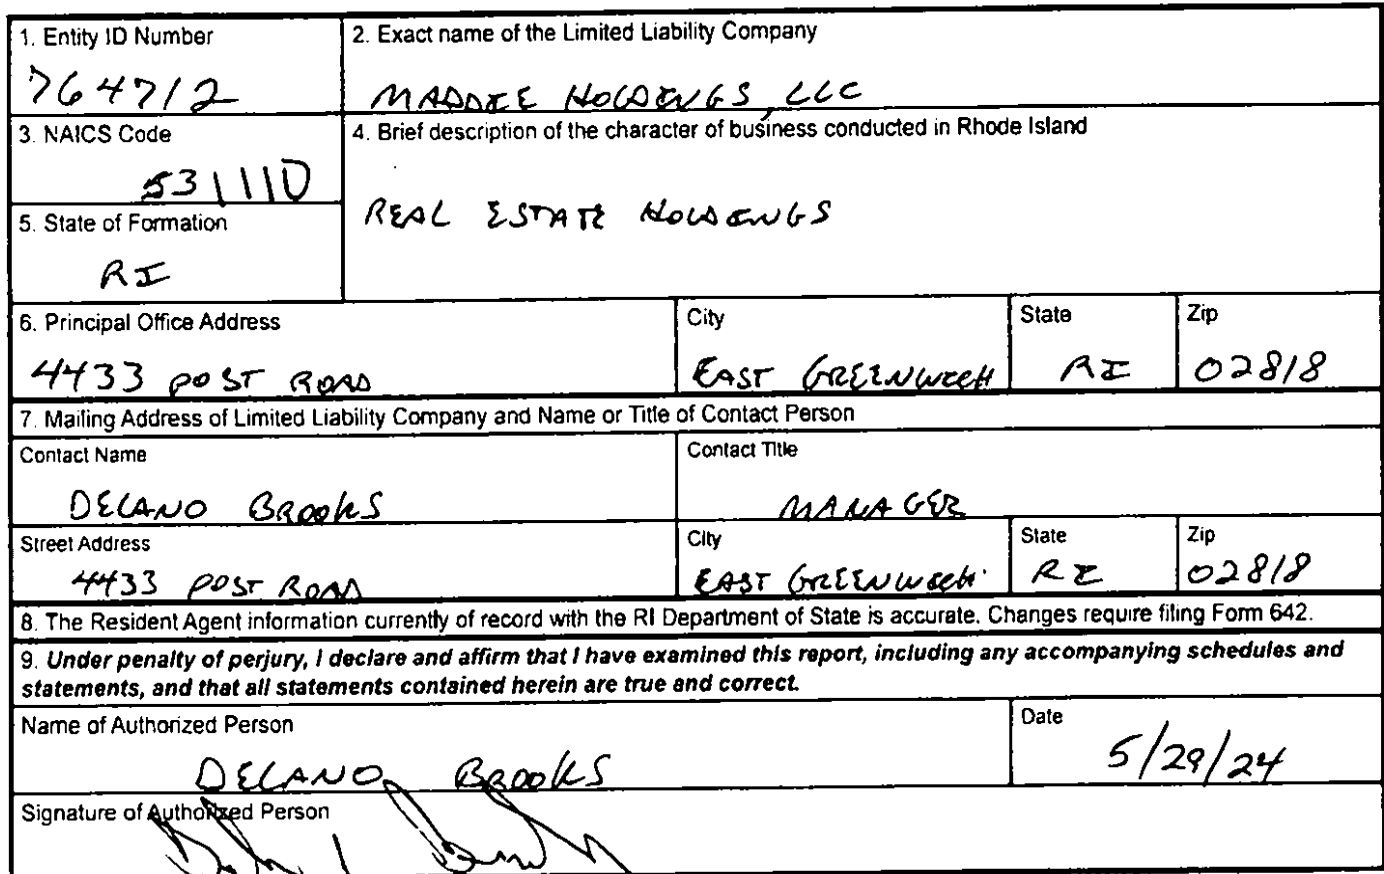 1. Entity ID Number
764712
2. Exact name of the Limited Liability Company
MADDIE HOLDINGS, LLC
3. NAICS Code
531110
4. Brief description of the character of business conducted in Rhode Island
REAL ESTATE HOLDINGS
5. State of Formation
RI
6. Principal Office Address
4433 POST ROAD
City
EAST GREENWICH
State
RI
Zip
02818
7. Mailing Address of Limited Liability Company and Name or Title of Contact Person
Contact Name
DELANO BROOKS
Contact Title
MANAGER
Street Address
4433 POST ROAD
City
EAST GREENWICH
State
RI
Zip
02818
8. The Resident Agent information currently of record with the RI Department of State is accurate. Changes require filing Form 642.
9. Under penalty of perjury, I declare and affirm that I have examined this report, including any accompanying schedules and
statements, and that all statements contained herein are true and correct.
Name of Authorized Person
DELANO BROOKS
Date
5/29/24
Signature of Authorized Person